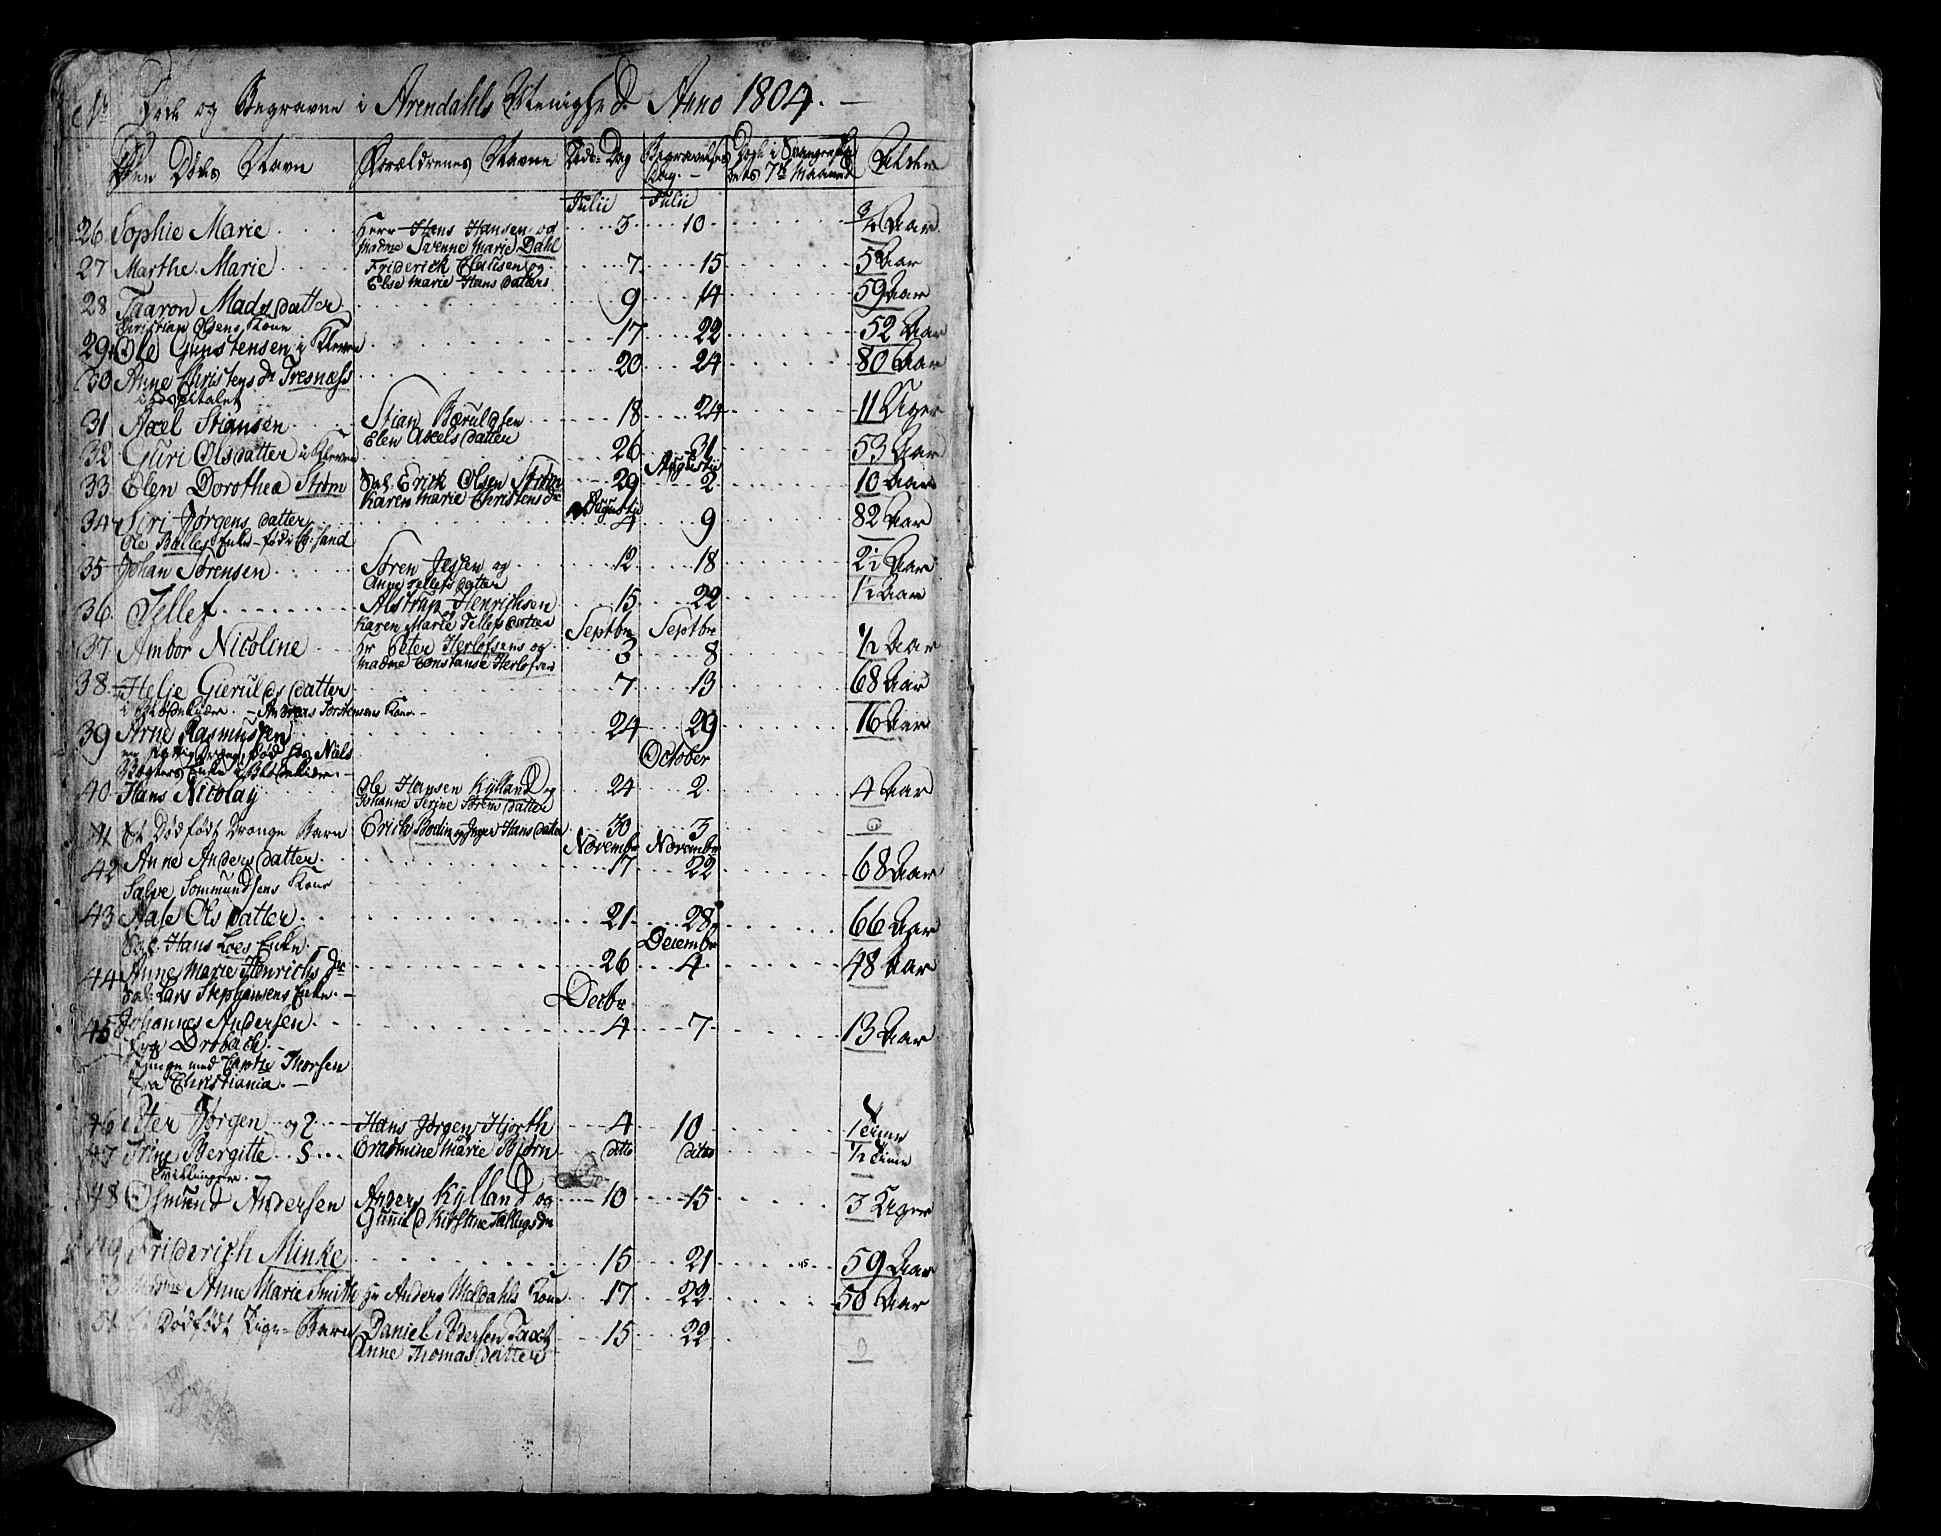 Døde og Begravne i Arendahls Menighed Anno 1804.
Den Dødes Navn Forældrenes Navne Døds-Dag Begravelses Dag. Døde i Svangerskabets 7de Maaned Alder
Julii Julii
26 Sophie Marie Herr Hans Hansen og 3 10 3/4 Aar
Madme Svenne Marie Dahl
27 Marthe Marie Friderich Clausen og 7 15 5 Aar
Else Marie Hans Datter
28 Taaron Mads Datter 9 14 59 Aar
Christian Olsens Kone
29 Ole Gunstensen i Kleven 17 22 52 Aar
30 Anne Christens Dr Tresnæss 20 24 80 Aar
i Hospitalet
31 Axel Stiansen Stian Bærulfsen 18 24 11 Uger
Elen Axels Datter
32 Guri Olsdatter i Kleven 26 31 53 Aar
Augustii
33 Elen Dorothea Strøm Sal. Erick Olsen Strøm 29 2 10 Aar
Karen Marie Christens Dr
Augustii
34 Siri Jørgens Datter 4 9 82 Aar
Ole Balles Enke - fød i Ch:sand
35 Johan Sørensen Søren Jessen og 12 18 2½ Aar
Anne Tellefs Datter
36 Tellef Alstrup Henrichsen 15 22 1½ Aar
Karen Marie Tellefs Datter
Septbr Septbr
37 Ambor Nicoline Hr Peter Herlofsens og 3 8 1/2 Aar
Madme Constanse Herlofsen
38 Helje Gieruldsdatter 7 13 68 Aar
Andreas Torstensens Kone
39 Arne Rasmussen 24 29 16 Aar
Niels
October
40 Hans Nicolay Ole Hansen Kylland og 24 2 4 Aar
Johanne Serine Sørens Datter
41 Et Dødfødt Drenge Barn Erick Bodin og Inger Hans Datter 30 3 0
Novembr Novembr
42 Anne Anders Datter 17 22 68 Aar
Salve Sommundsens Kone
43 Aase Ols Datter 21 28 66 Aar
Sal. Hans Loes Enke
Decembr
44 Anne Marie Henrichs Dr 26 4 48 Aar
Sal: Lars Stephansens Enke
Decbr
45 Johannes Andersen 4 7 13 Aar
fra Drøbach
Junge med Capt: Thorsen
fra Christiania
46 Peter Jørgen og Hans Jørgen Hjorth 4 10 1 Time
47 Trine Bergitte Erasmine Marie Bjørn ditto ditto 1/2 Time
Tvillinger
48 Osmund Andersen Anders Kylland og 10 15 3 Uger
Gunild Kirstine Tallugs Dr
49 Friderich Minke 15 21 59 Aar
Madme Anne Marie Smith Hr Anders Moldahls Kone 17 22 50 Aar
51 Et Dødfødt Pige-Barn Daniel Pedersen Taxt 15 22 0
Anne Thomas Datter